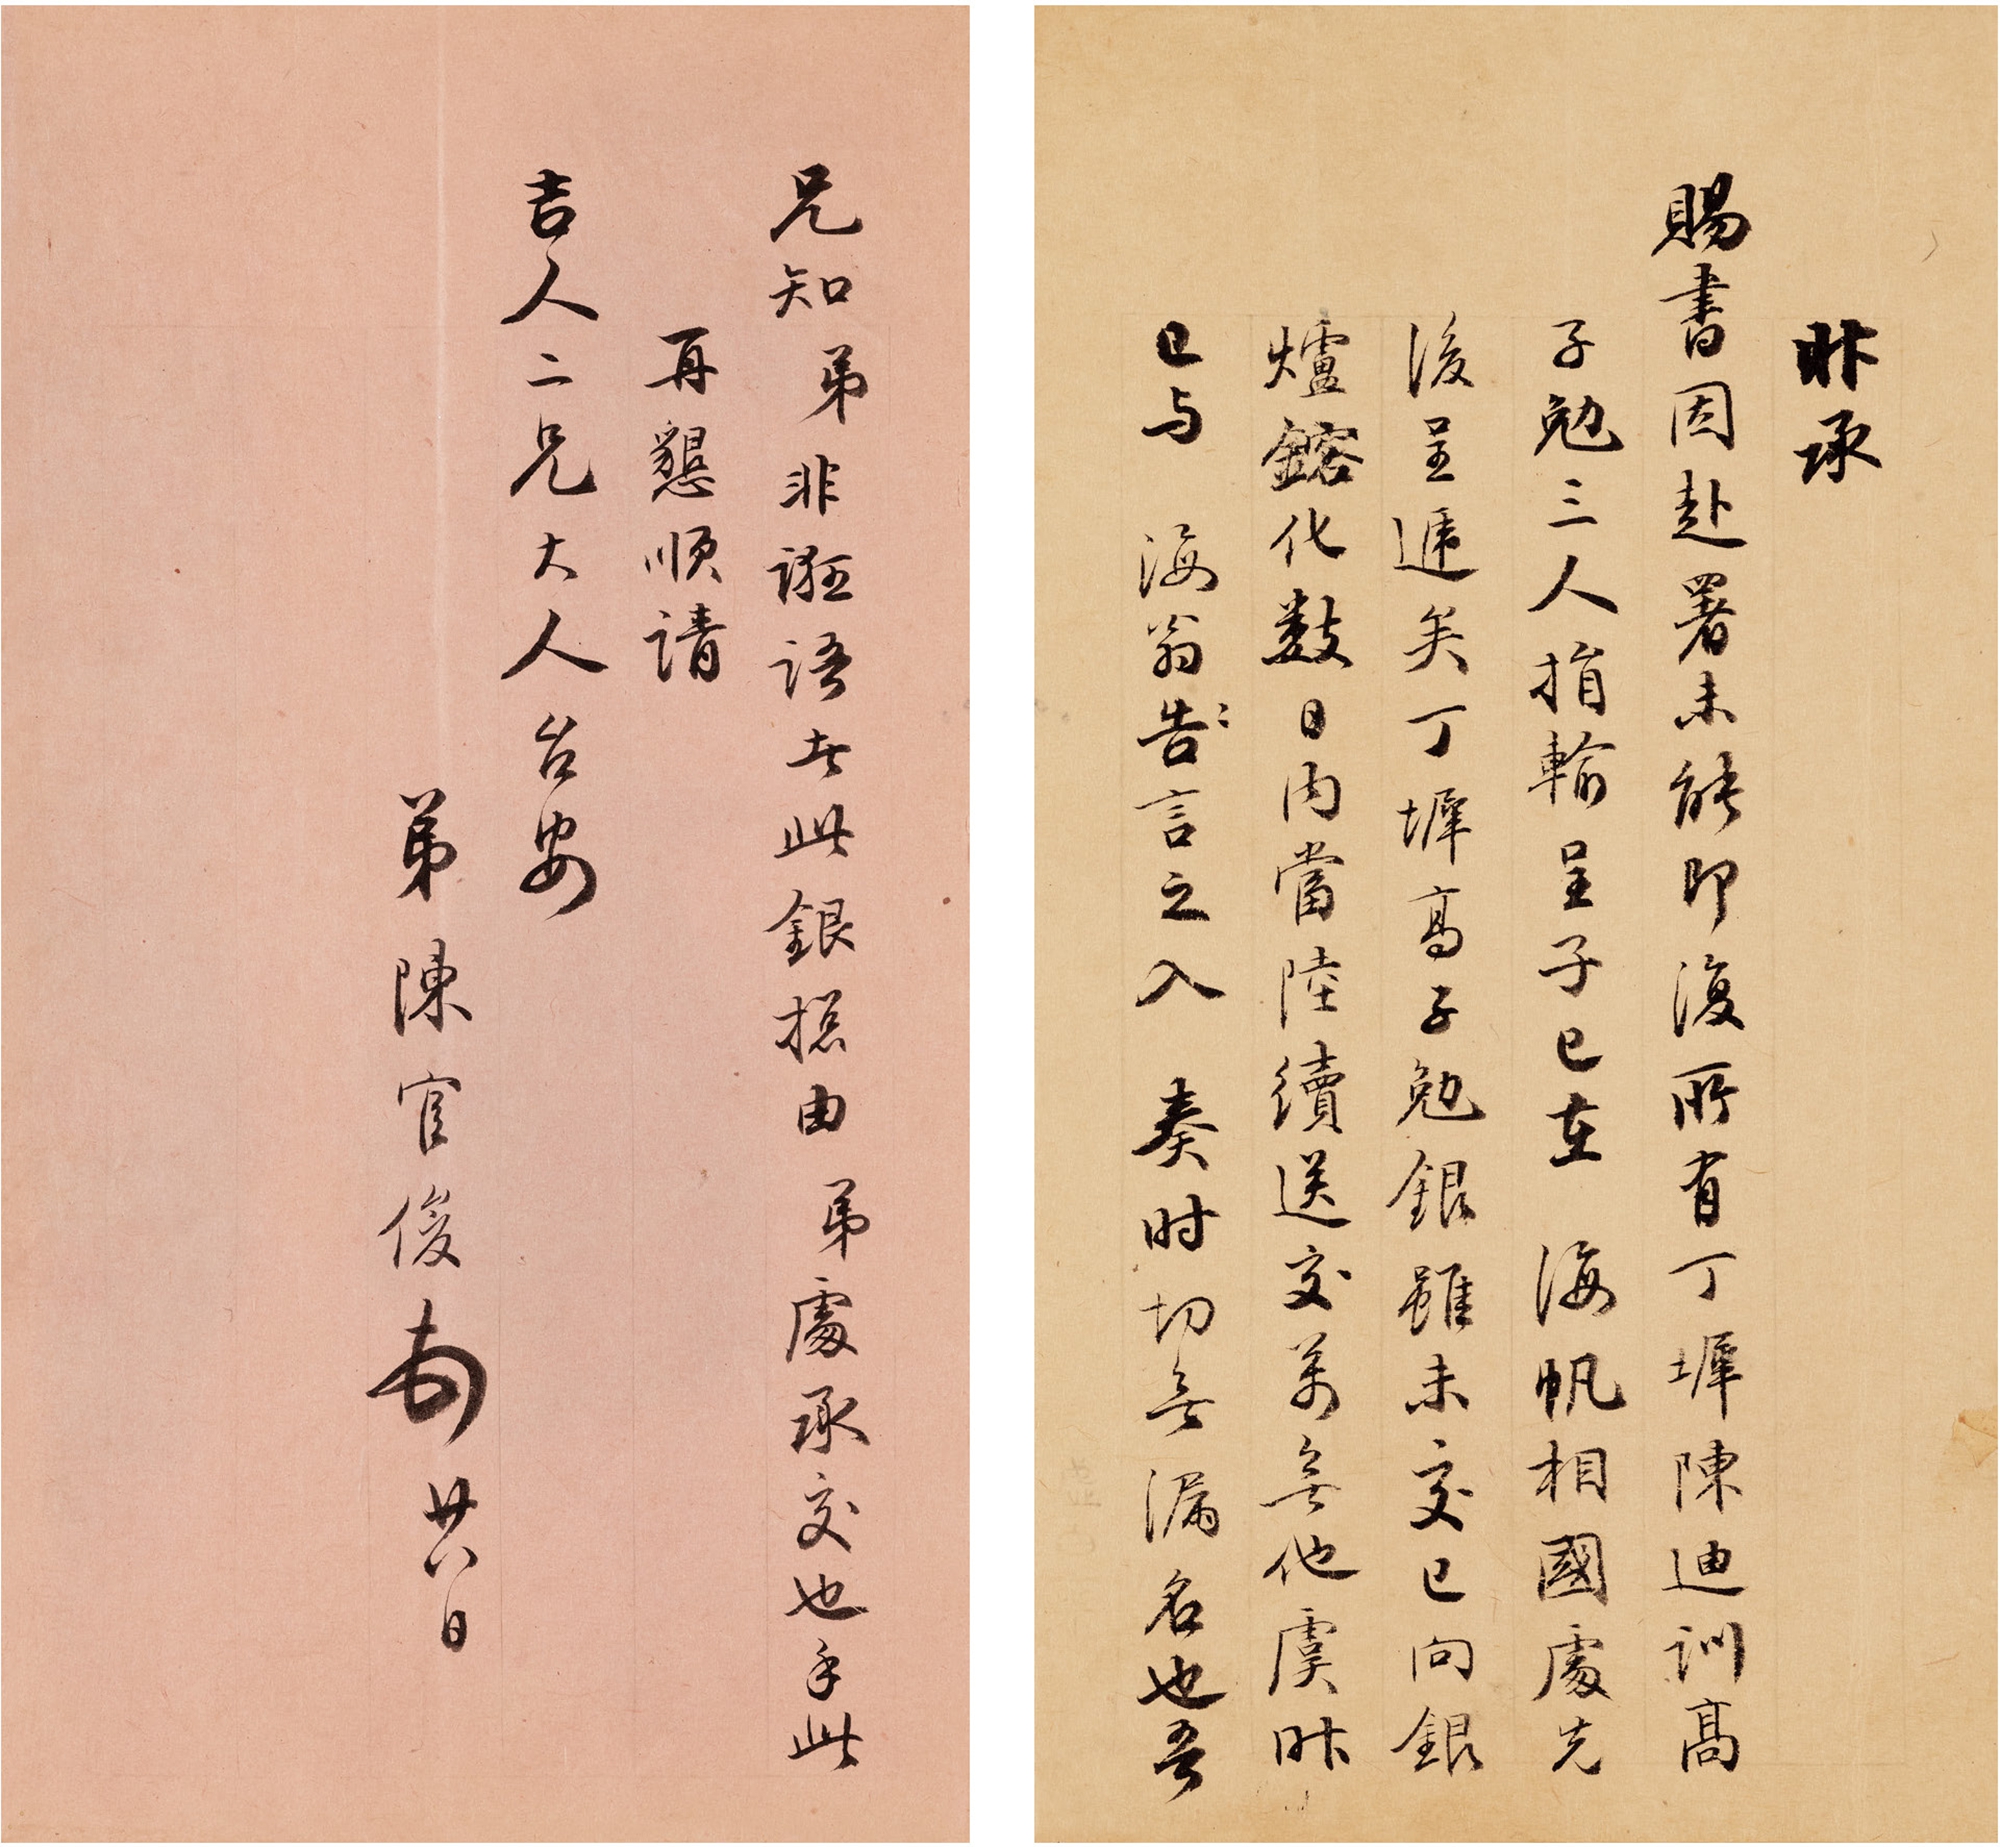 昨承
賜書因赴署未能即復所有丁墀陳迪訓高
子勉三人捐輸呈子已在 海帆相國處先
後呈遞矣丁墀高子勉銀雖未交已向銀
爐鎔化數日内當陸續送交萬無他虞昨
已与 海翁告言之入 奏时切無漏名也吾
兄知弟非誑語者此銀揔由弟處承交也手此
再懇順請
吉人二兄大人台安
弟陳官俊頓廿八日